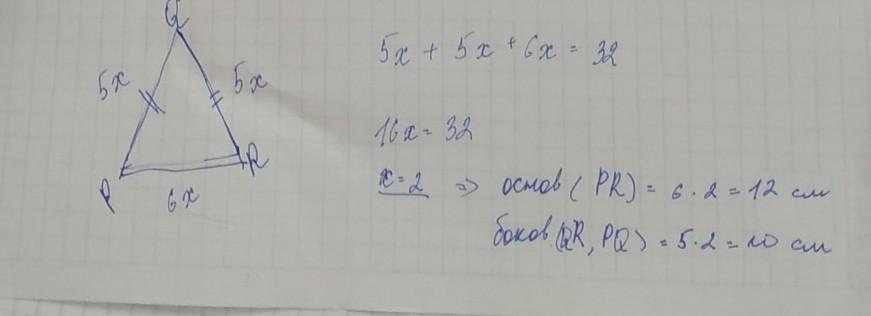 Q
5x
5x
P
R
6x
5x + 5x + 6x = 32
16x = 32
x = 2 => основ (PR) = 6 · 2 = 12 см
боков (QR, PQ) = 5 · 2 = 10 см